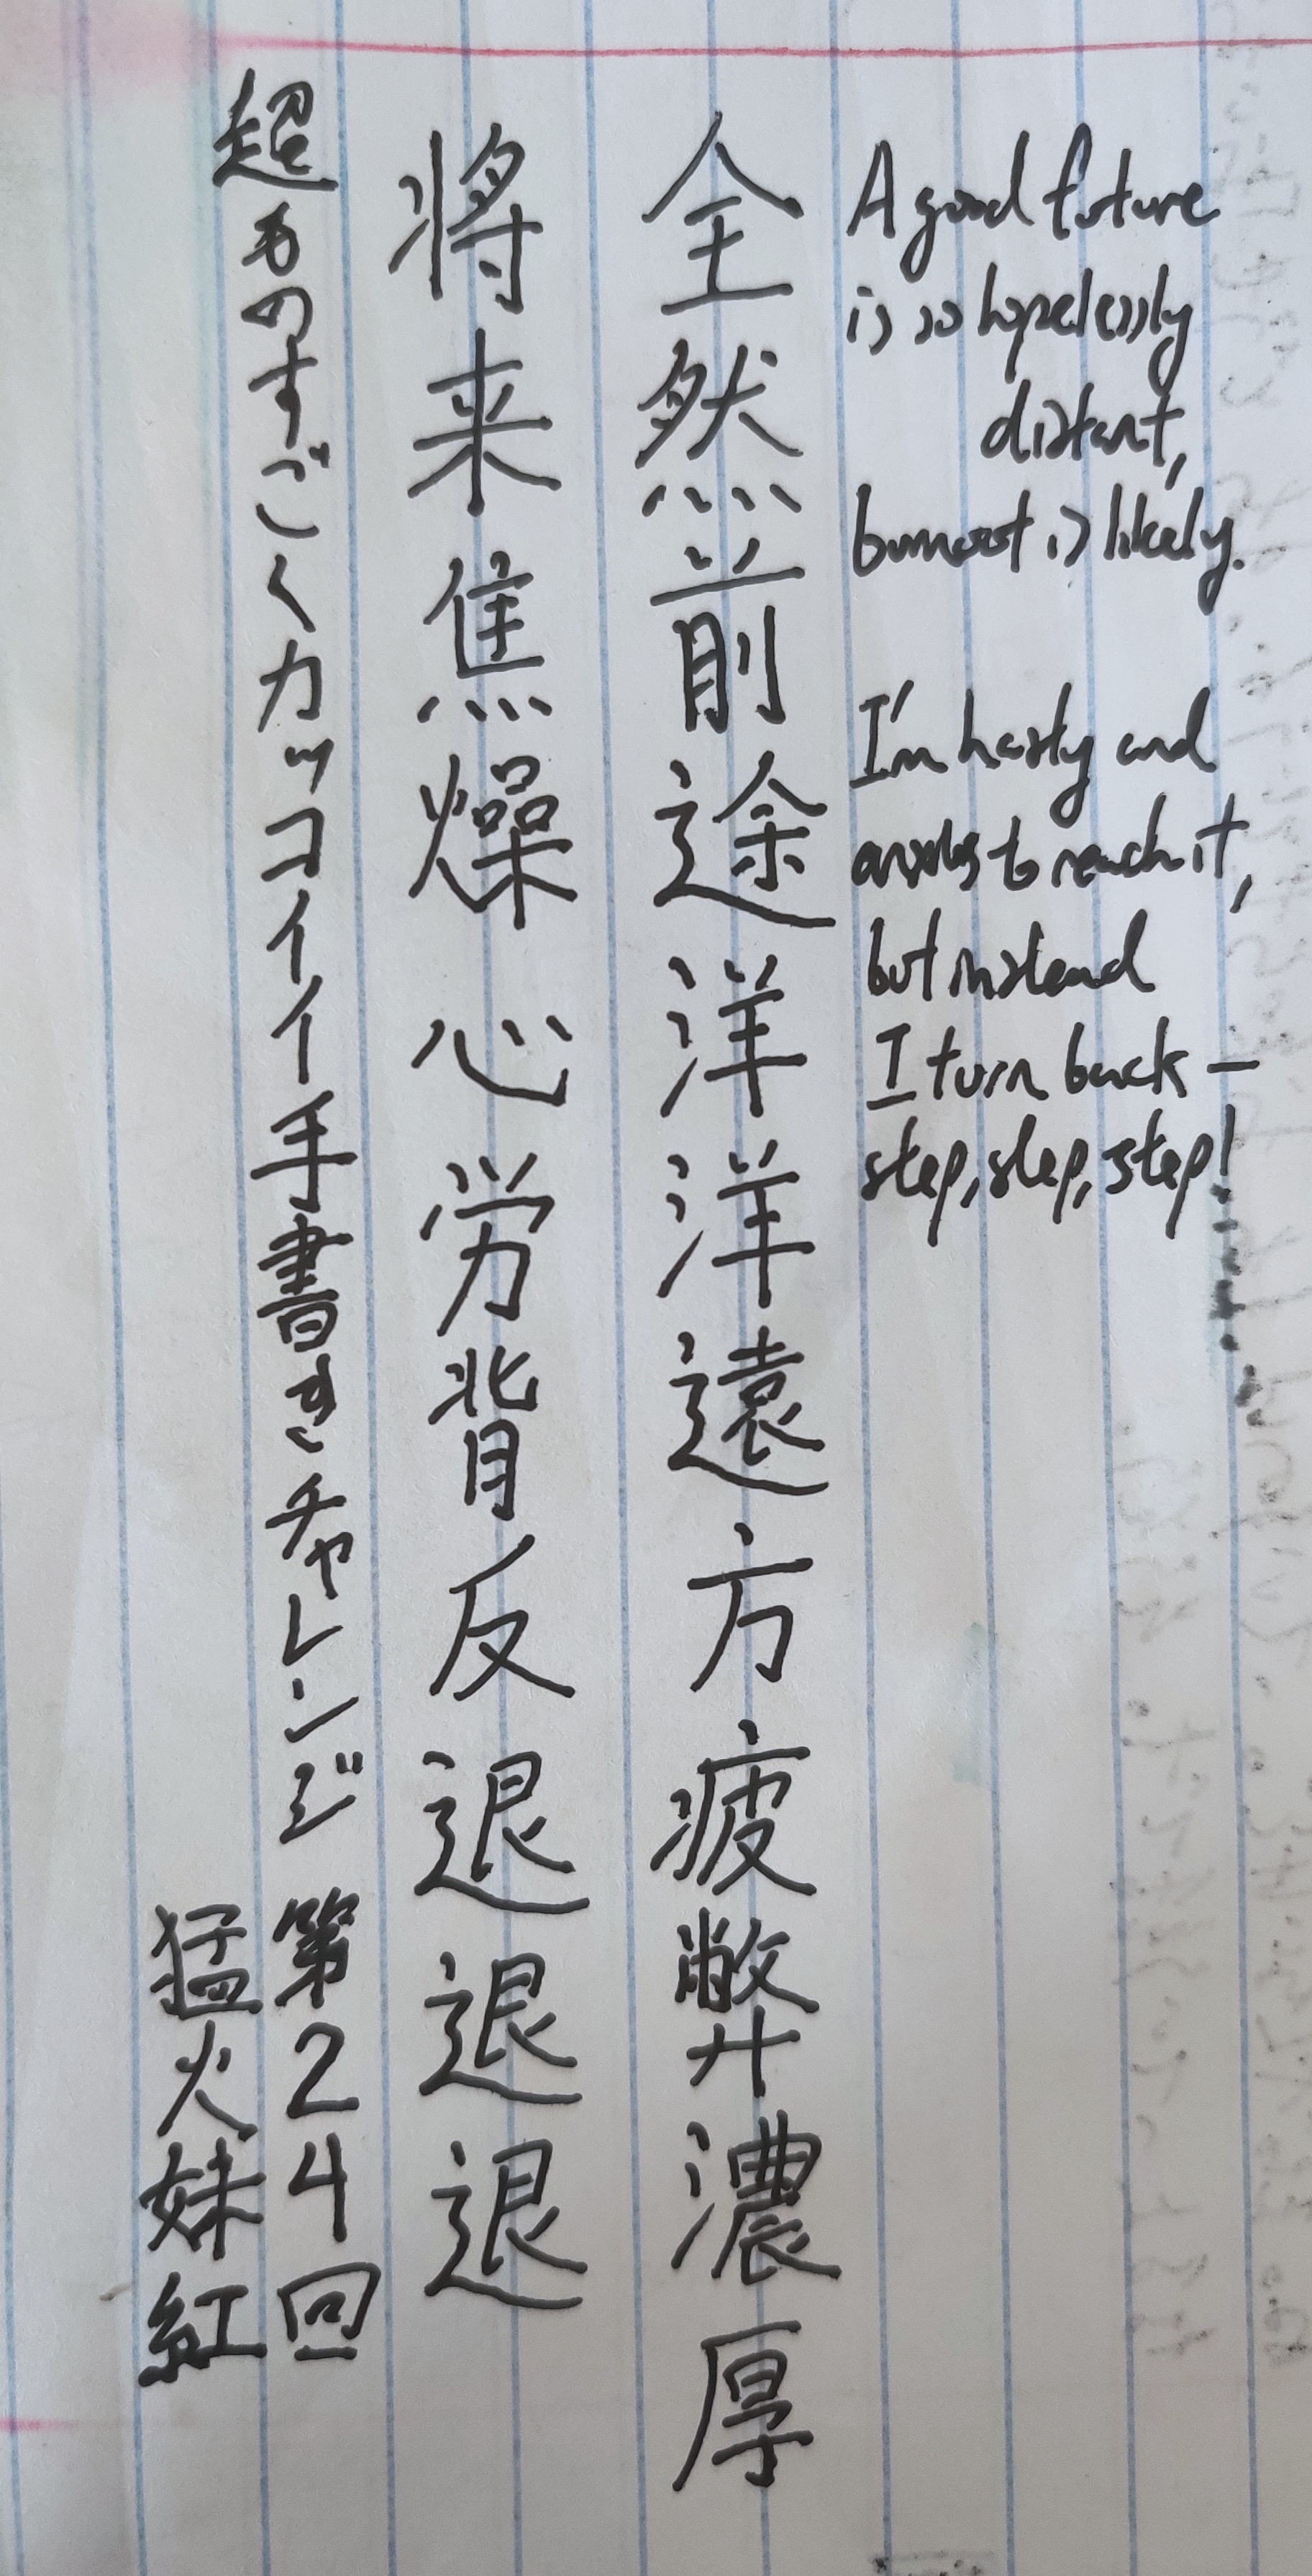 A good future
is so hopelessly
distant,
burnout is likely.
I'm hasty and
anxious to reach it,
but instead
I turn back—
step, step, step!
全然前途洋洋遠方疲弊濃厚
将来焦燥心労背反退退退
超ものすごくカッコイイ手書きチャレンジ 第24回
猛火妹紅